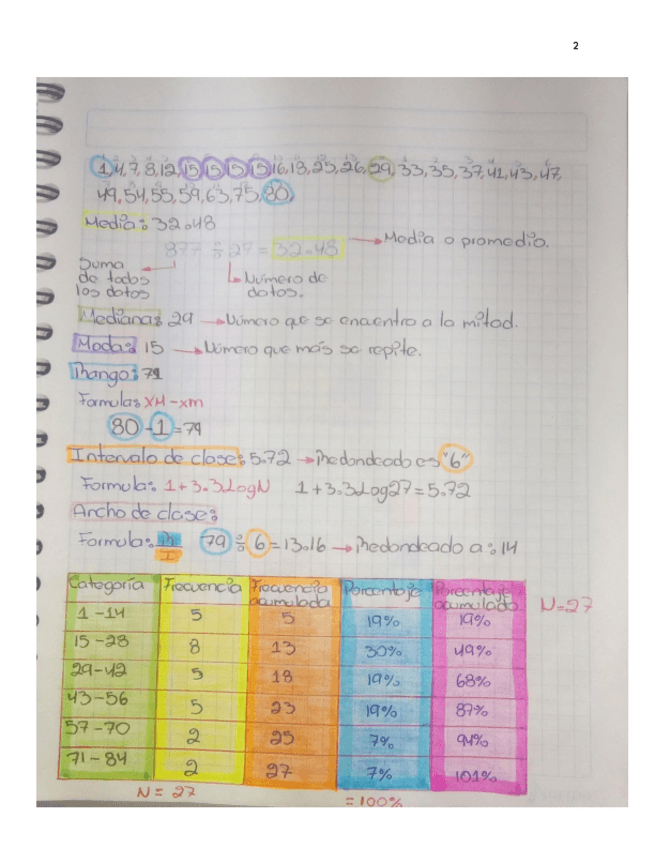 2
1,4,7,8,12,15,15,15,15,16,18,25,26,29,33,35,37,41,43,47,
49,54,55,59,63,75,80,
Media: 32.48
877 ÷ 27 = 32.48 → Media o promedio.
Suma de todos los datos
Número de datos.
Mediana: 29 → Número que se encuentro a la mitad.
Moda: 15 → Número que más se repite.
Rango: 79
Formula: XM-xm
80-1=79
Intervalo de clase: 5.72 → Redondeado es "6"
Formula: 1+3.3LogN 1+3.3Log27=5.72
Ancho de clase:
Formula: R/I 79÷6=13.16 → Redondeado a: 14
Categoría Frecuencia Frecuencia acumulada Porcentaje Porcentaje acumulado N=27
1-14 5 5 19% 19%
15-28 8 13 30% 49%
29-42 5 18 19% 68%
43-56 5 23 19% 87%
57-70 2 25 7% 94%
71-84 2 27 7% 101%
N= 27 =100%